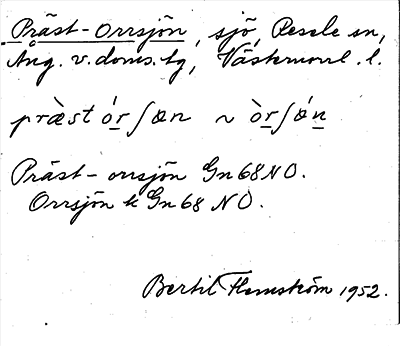 Präst-Orrsjön, sjö, Resele sn,
Ång. v. doms. tg, Västernorrl. l.
præ̀st órʃøn ~ òrʃǿn
Präst-orrsjön Gn 68 NO.
Orrsjön k Gn 68 NO.
Bertil Flemström 1952.